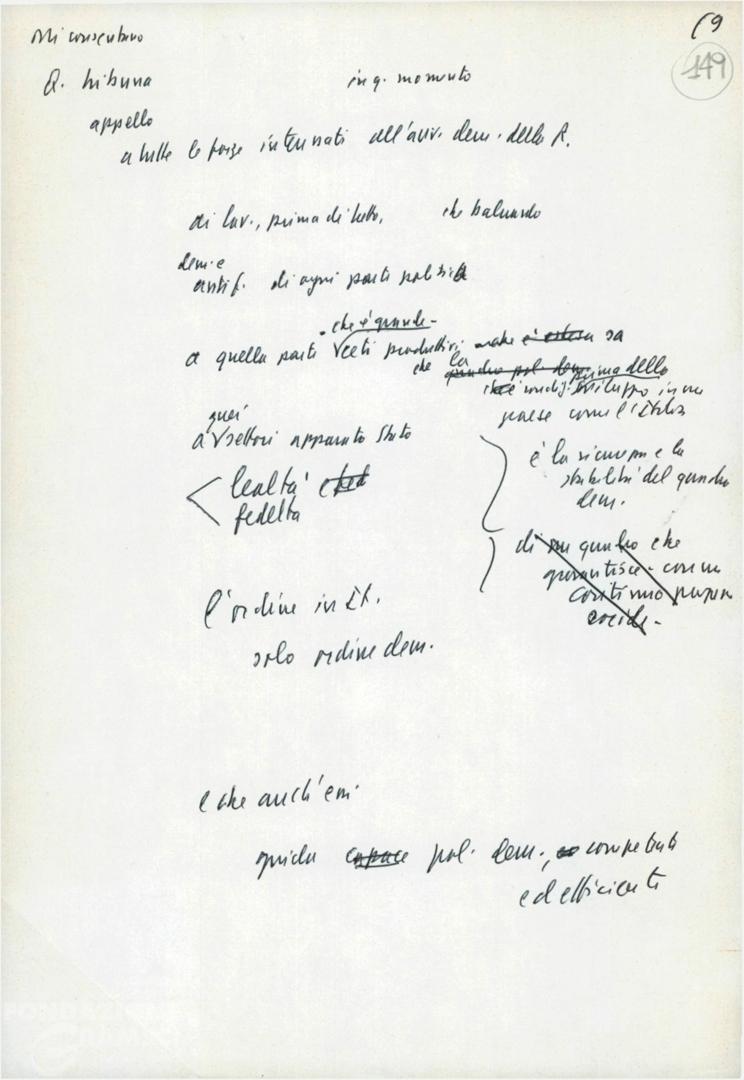 69
149
Mi consentano
Q. tribuna in q. momento
appello
a tutte le forze interessati all'avv. dem. della R.
ai lav., prima di tutto, che baluardo
dem. e
antif. di ogni parte politica
che è grande -
a quella parte ceti produttivi sa
che la prima della
condiz. sviluppo in un
paese come l'Italia
quei
a settori apparato Stato
è la sicurezza e la
stabilità del quadro
dem.
lealtà e
fedeltà
di un quadro che
garantisce - come
continuo
sociale -
l'ordine in It.
solo ordine dem.
e che anch'essi
guida capace pol. dem., competente
ed efficiente
FONDAZIONE
GRAMSCI